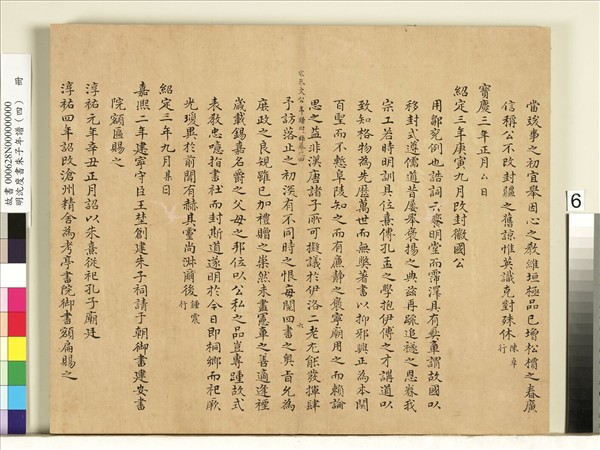 當竣事之初宜舉因心之敎維垣極品已增松槚之春廣
信稱公不改封疆之舊諒惟英識克對殊休陳卓行
寳慶三年正月 日
紹定三年庚寅九月改封徽國公
用鄒兗例也誥詞云 明堂而霈澤具有 章謂故國以
移封式遵儒道昔屢崇褒揚之典茲再疏追褒之恩眷我
宗工若時明訓具位熹傳孔孟之學抱伊傅之才講道以
致知格物為先歴萬世而無弊著書以抑邪與正為本關
百聖而不慙阜陵知之而有廉靜之褒寧廟用之而賴論
宋朱文公年譜 卷之四
思之益非漢唐諸子所可擬議於伊洛二老尤能發揮肆
六
予訪落之初深有不同時之恨每閱四書之奥旨允為
庶政之良規雖已加禮贈之崇然未盡 章之善適逢禋
歲載錫嘉名爵之父母之邦位以公私之品豈專踵故式
表敎忠噫指書社而封斯道遂明於今日即桐鄉而祀厥
光 異於前聞有赫具靈尚淋爾後鍾震行
紹定三年九月 日
嘉熙二年建寧守臣王埜創建朱子祠請于朝御書建安書
院額匾賜之
淳祐元年辛丑正月詔以朱熹從祀孔子廟廷
淳祐四年詔改滄州精舍為考亭書院御書額扁賜之
宙
故書000628N000000000
明沈度書朱子年譜（四）
6